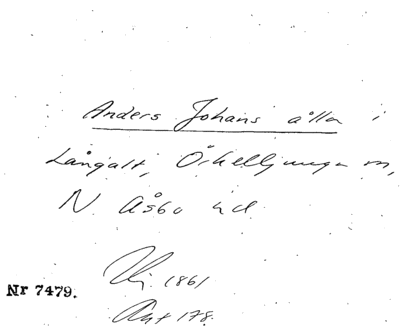 Anders Johans ålla i
Långalt, Örkelljunga sn,
N. Åsbo hd
1861
Nr 7479.
178.